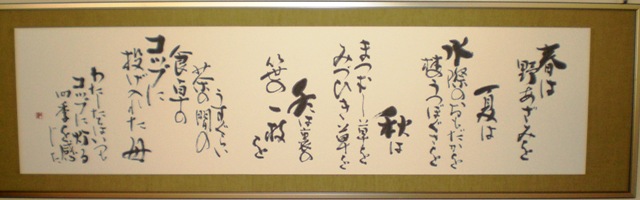 春は
野あざみを
夏は
水際のおもだかを
秋は
まつむし草を
みつひき草を
冬は裏の
笹の一枝を
うすぐらい
茶の間の
食卓の
コップに
投げ入れた母
わたしたちはいつも
コップに
四季を感